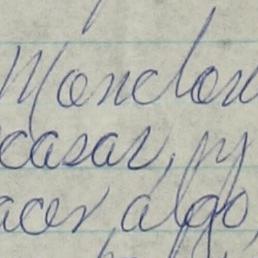 Monclov
casar, y
acer, algo,